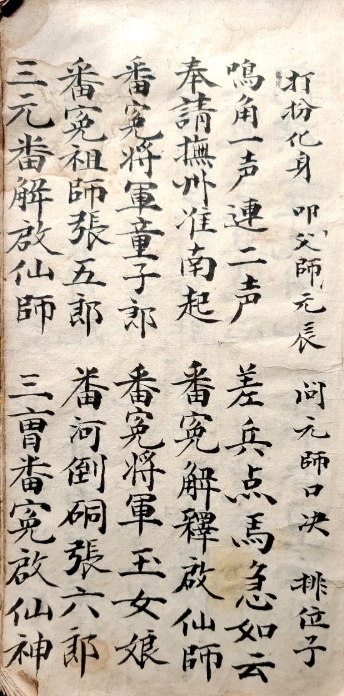 打扮化身 叩父師元辰 问元師口决 排位子
鳴角一声連二声 差兵点馬急如云
奉請撫州淮南起 番寃解釋啟仙師
番寃将軍童子郎 番寃将軍玉女娘
番寃祖師張五郎 番河倒硐張六郎
三元番解啟仙師 三曺番寃啟仙神